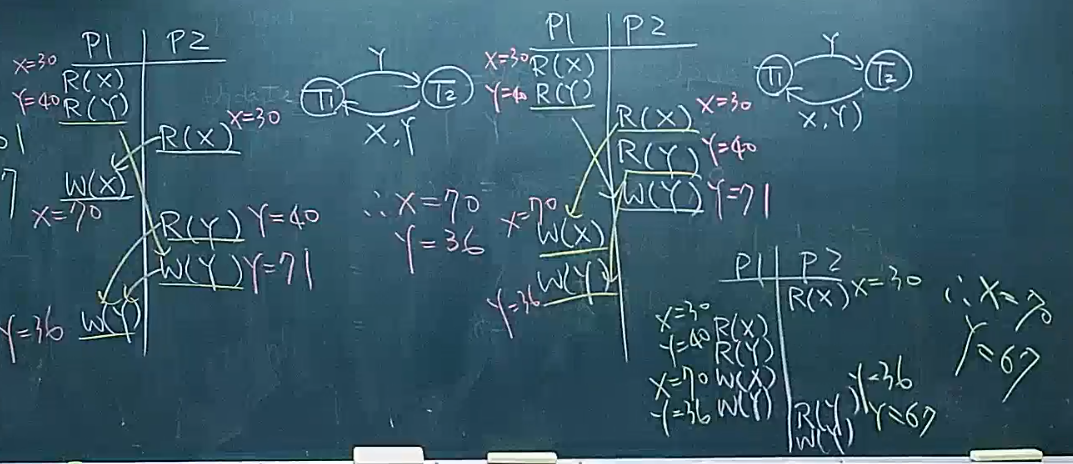 P1 P2
X=30 R(X)
Y=40 R(Y)
R(X) X=30
W(X)
X=70
R(Y) Y=40
W(Y) Y=71
Y=36 W(Y)
Y
T1 T2
X,Y
∴X=70
Y=36
P1 P2
X=30 R(X)
Y=40 R(Y)
R(X) X=30
R(Y) Y=40
W(Y) Y=71
X=70 W(X)
Y=36 W(Y)
Y
T1 T2
X,Y)
P1 P2
R(X) X=30
X=30 R(X)
Y=40 R(Y)
X=70 W(X)
Y=36 W(Y)
R(Y) Y=36
W(Y) Y=67
∴X=70
Y=67